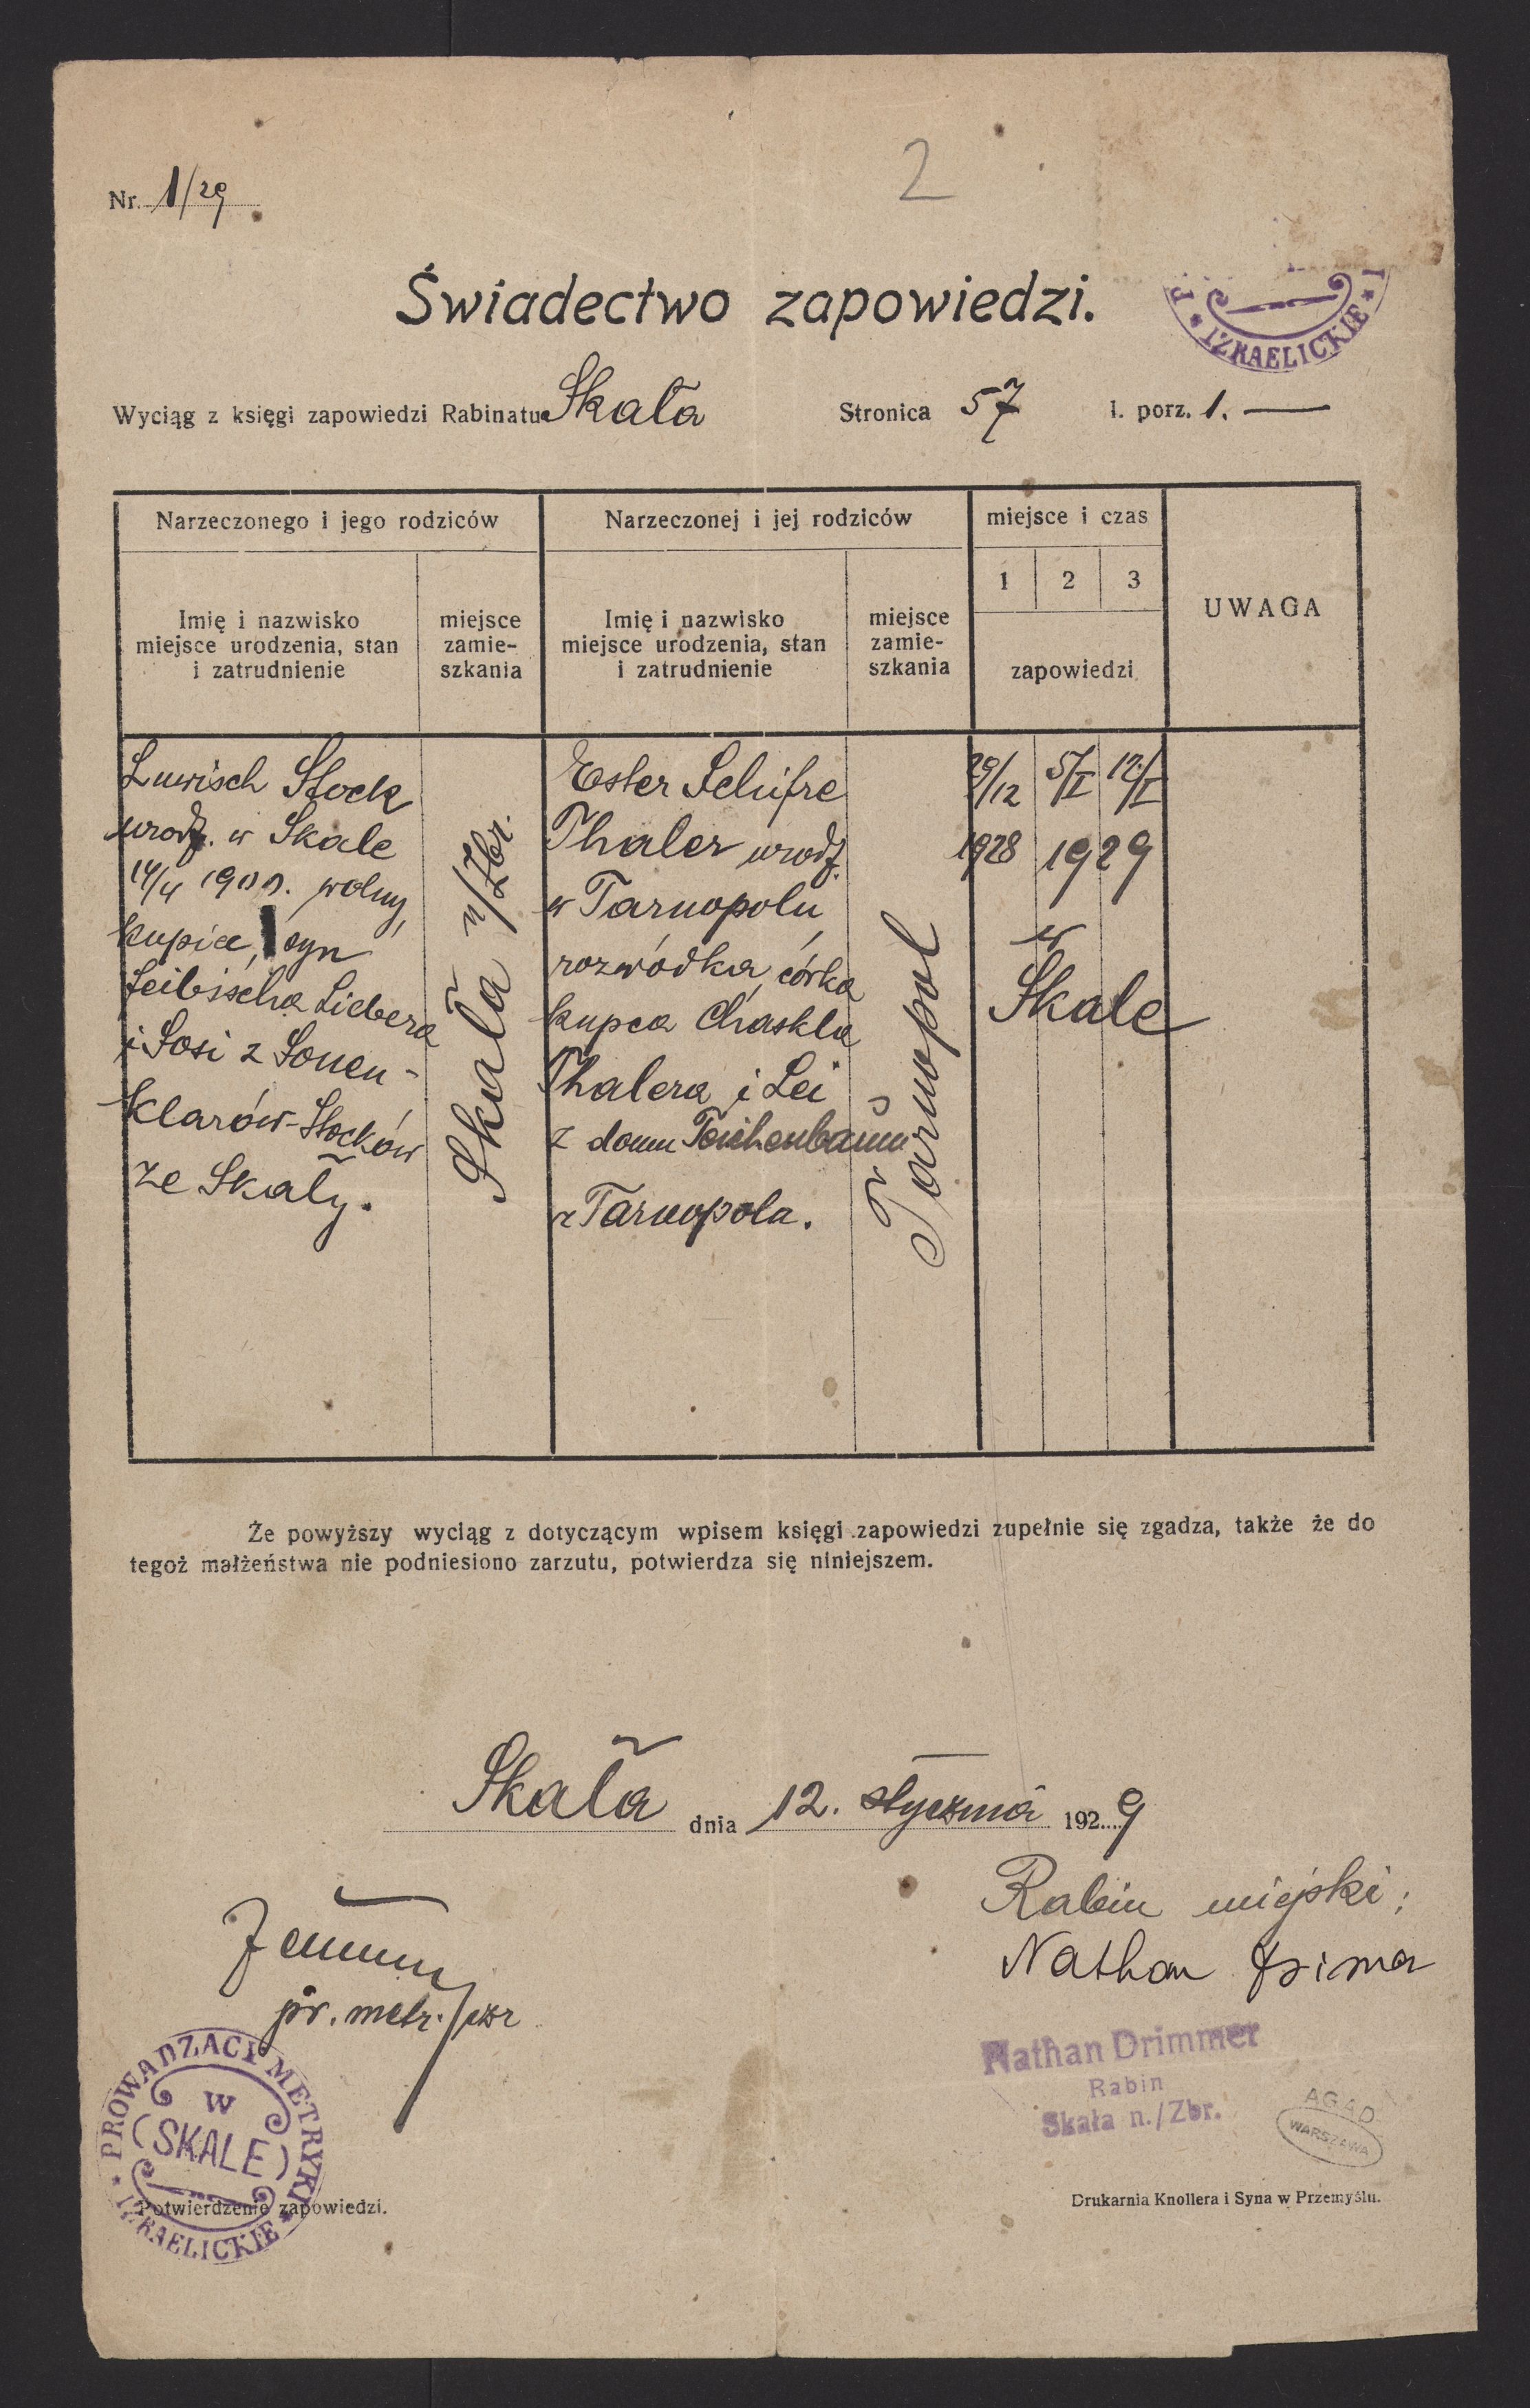 Nr. 1/29
2
Świadectwo zapowiedzi.
IZRAELICKIE
Wyciąg z księgi zapowiedzi Rabinatu Skała Stronica 57 l. porz. 1. —
Narzeczonego i jego rodziców
Narzeczonej i jej rodziców
miejsce i czas
UWAGA
Imię i nazwisko
miejsce urodzenia, stan
i zatrudnienie
miejsce
zamie-
szkania
Imię i nazwisko
miejsce urodzenia, stan
i zatrudnienie
miejsce
zamie-
szkania
1 2 3
zapowiedzi
Luwisch Stock
urodz. w Skale
14/4 1900. wolny,
kupiec, syn
Leibischa Liebera
i Sosi z Sonen-
klarów-Stocków
ze Skały.
Skała n/Zbr.
Ester Schifre
Thaler urodz.
w Tarnopolu
rozwódka, córka
kupca Chaskla
Thalera i Lei
z domu Teichenbaum
z Tarnopola.
Tarnopol
29/12 5/I 12/I
1928 1929
w
Skale
Że powyższy wyciąg z dotyczącym wpisem księgi zapowiedzi zupełnie się zgadza, także że do
tegoż małżeństwa nie podniesiono zarzutu, potwierdza się niniejszem.
Skała dnia 12. stycznia 1929
Rabin miejski:
Nathan
pr. metr. izr
Nathan Drimmer
Rabin
Skała n./Zbr.
AGAD
WARSZAWA
PROWADZĄCY METRYKI
W
(SKALE)
IZRAELICKIE
Potwierdzenie zapowiedzi.
Drukarnia Knollera i Syna w Przemyślu.